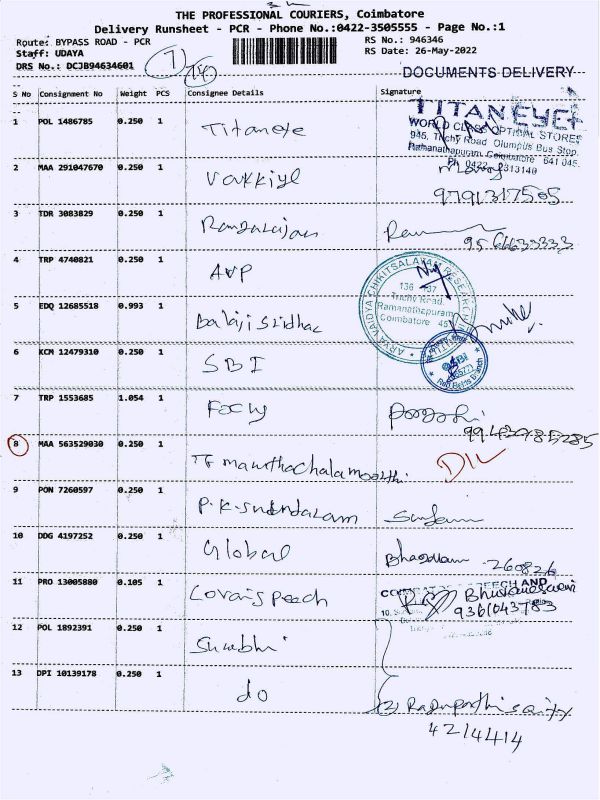 THE PROFESSIONAL COURIERS, Coimbatore
Delivery Runsheet - PCR - Phone No.:0422-3505555 - Page No.:1
Route: BYPASS ROAD - PCR
RS No.: 946346
Staff: UDAYA
RS Date: 26-May-2022
DRS No.: DCJB94634601
DOCUMENTS DELIVERY
S No Consignment No Weight PCS Consignee Details Signature
1 POL 1486785 0.250 1 Titaneye
TITAN EYE+
WORLD CLASS OPTICAL STORES
945, Trichy Road Olumpus Bus Stop,
Ramanathapuram, Coimbatore 641 045.
Ph 0422 2313140
2 MAA 291047670 0.250 1 Vakkiyl
9791317505
3 TDR 3083829 0.250 1 Rangarajan
9566633333
4 TRP 4740821 0.250 1 AVP
ARYA VAIDYA CHIKITSALAYAM RESEARCH
136 - 137
Trichy Road
Ramanathapuram
Coimbatore 45
5 EDQ 12685518 0.993 1 Balaji Sridhar
6 KCM 12479310 0.250 1 SBI
SBI
Red Fields Branch
7 TRP 1553685 1.054 1
99439985285
8 MAA 563529030 0.250 1 Tr maruthachalamoorthi
DIL
9 PON 7260597 0.250 1 P.K.Sundaram
10 DDG 4197252 0.250 1 Global
260826
11 PRO 13005880 0.105 1 Covaispeech
SPEECH AND
Bhuvaneswari
9361043783
12 POL 1892391 0.250 1 Surabhi
13 DPI 10139178 0.250 1 do
(2)
4214414